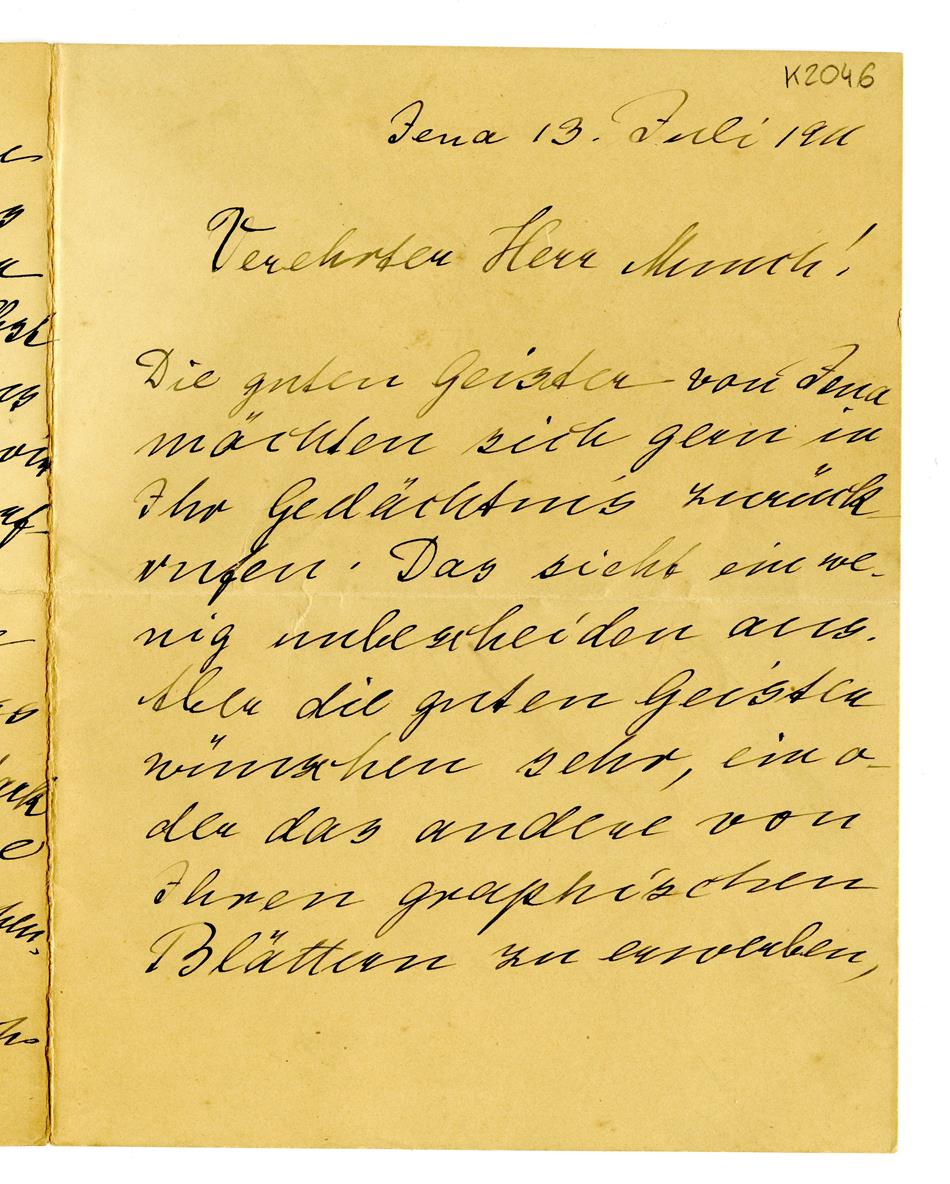 K2046
Jena 13. Juli 1911
Verehrter Herr Munch!
Die guten Geister von Jena
möchten sich gern in
Ihr Gedächtnis zurück
rufen. Das sieht ein we-
nig unbescheiden aus.
Aber die guten Geister
wünschen sehr, ein o-
der das andere von
Ihren graphischen
Blättern zu erwerben,